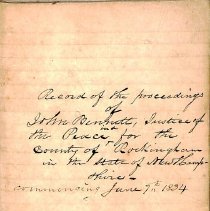 Record of the proceedings
of
John Bennett, Justice of
the Peace for the
County of Rockingham
in the State of New Hamp-
shire-
commencing June 9th 1834